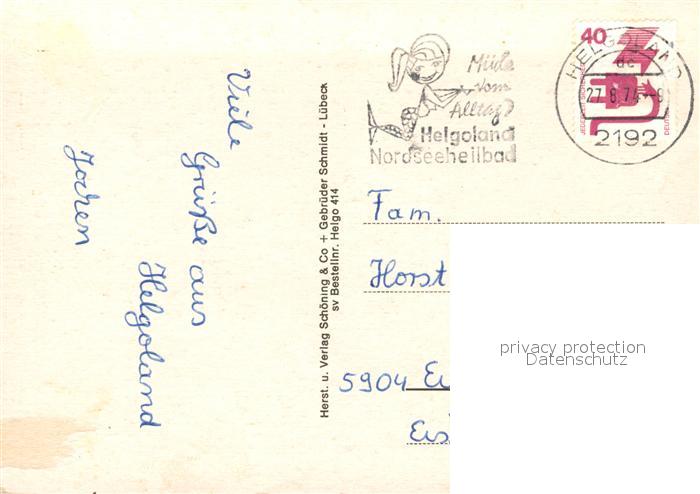 Viele
Grüße aus
Helgoland
Jochen
Herst. u. Verlag Schöning & Co + Gebrüder Schmidt - Lübeck
sv Bestellnr. Helgo 414
Müde
vom
Alltag?
Helgoland
Nordseeheilbad
40
HELGOLAND
27.8.74
2192
Fam.
Horst
5904
privacy protection
Datenschutz